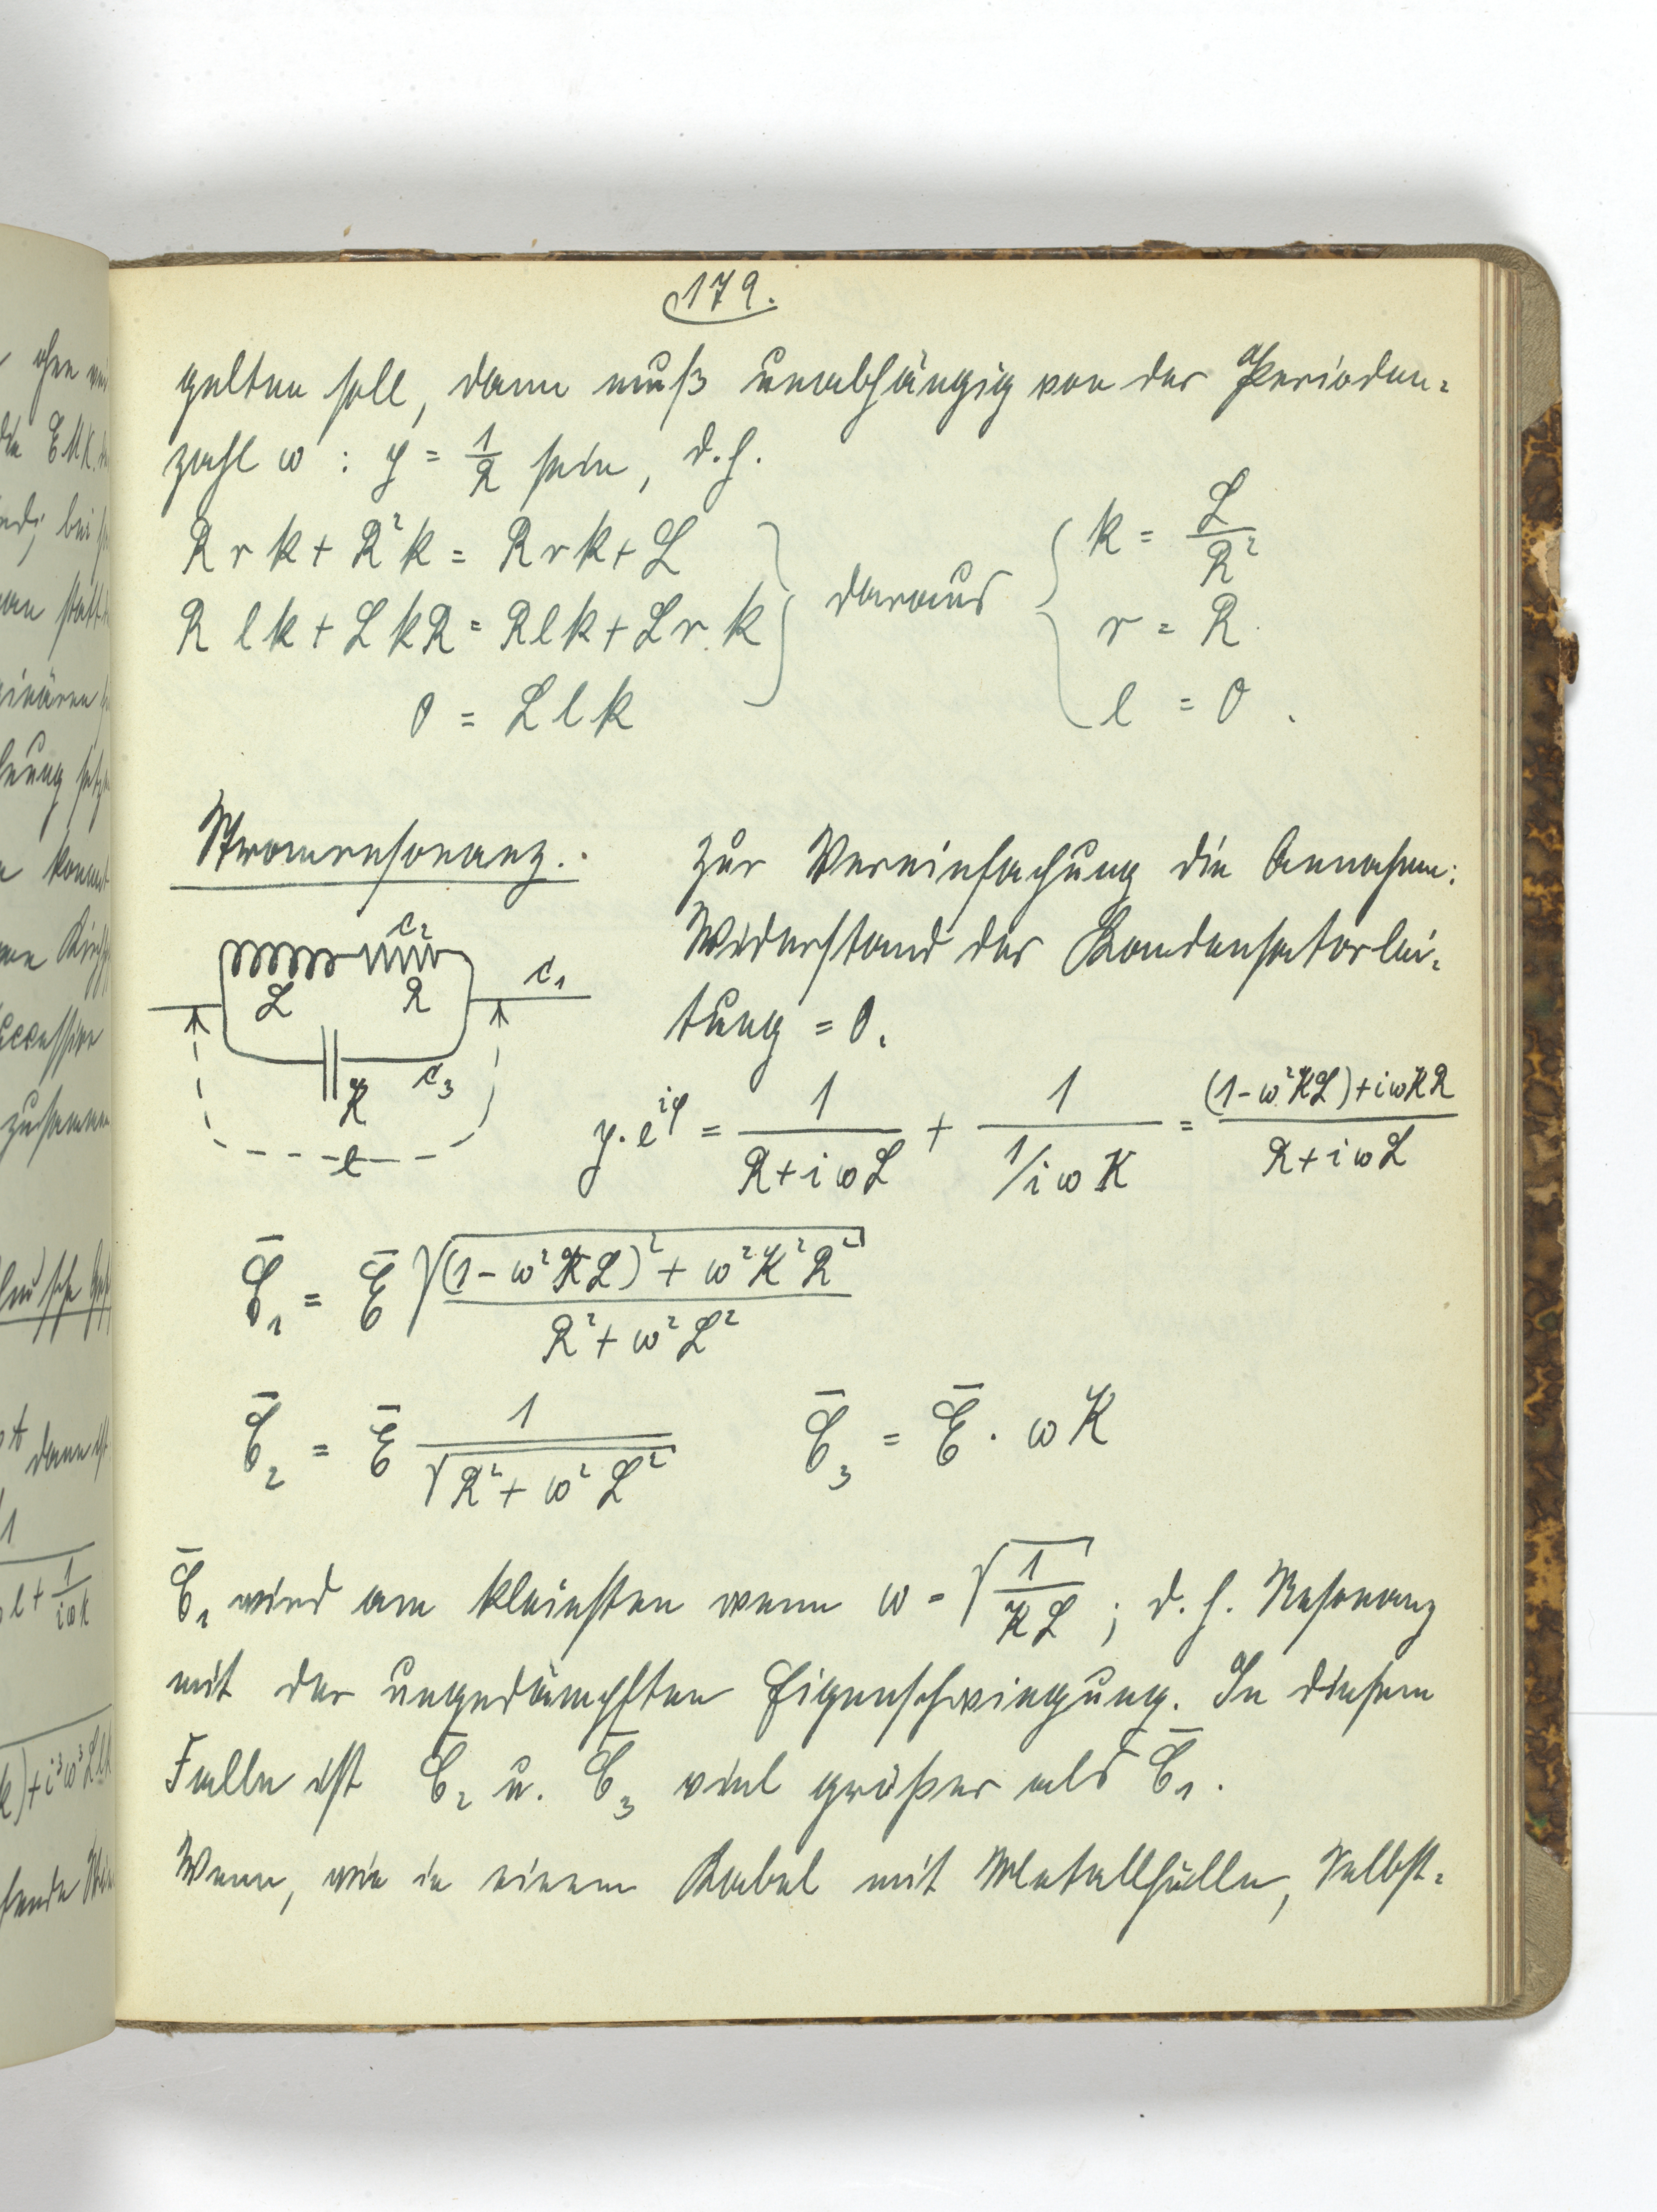 179.
gelten soll, dann muß unabhängig von der Perioden-
zahl ω : y = 1/R sein, d.h.
R r k + R²k = R r k + L
R l k + L k R = R l k + L r. k
0 = L l k
daraus
k = L/R²
r = R.
l = 0.
Stromresonanz.
Zur Vereinfachung die Annahme:
Widerstand der Kondensatorlei-
tung = 0.
L R c₂ c₁
K c₃
e
y·e^{iφ} = 1/(R+iωL) + 1/(1/iωK) = ((1-ω²KL)+iωKR)/(R+iωL)
C̄₁ = Ē √(((1-ω²KL)² + ω²K²R²)/(R²+ω²L²))
C̄₂ = Ē 1/√(R²+ω²L²) C̄₃ = Ē · ωK
C̄₁ wird am kleinsten wenn ω = √(1/KL) ; d.h. Resonanz
mit der ungedämpften Eigenschwingung. In diesem
Falle ist C̄₂ u. C̄₃ viel größer als C̄₁.
Wenn, wie in einem Kabel mit Metallhülle, Selbst-